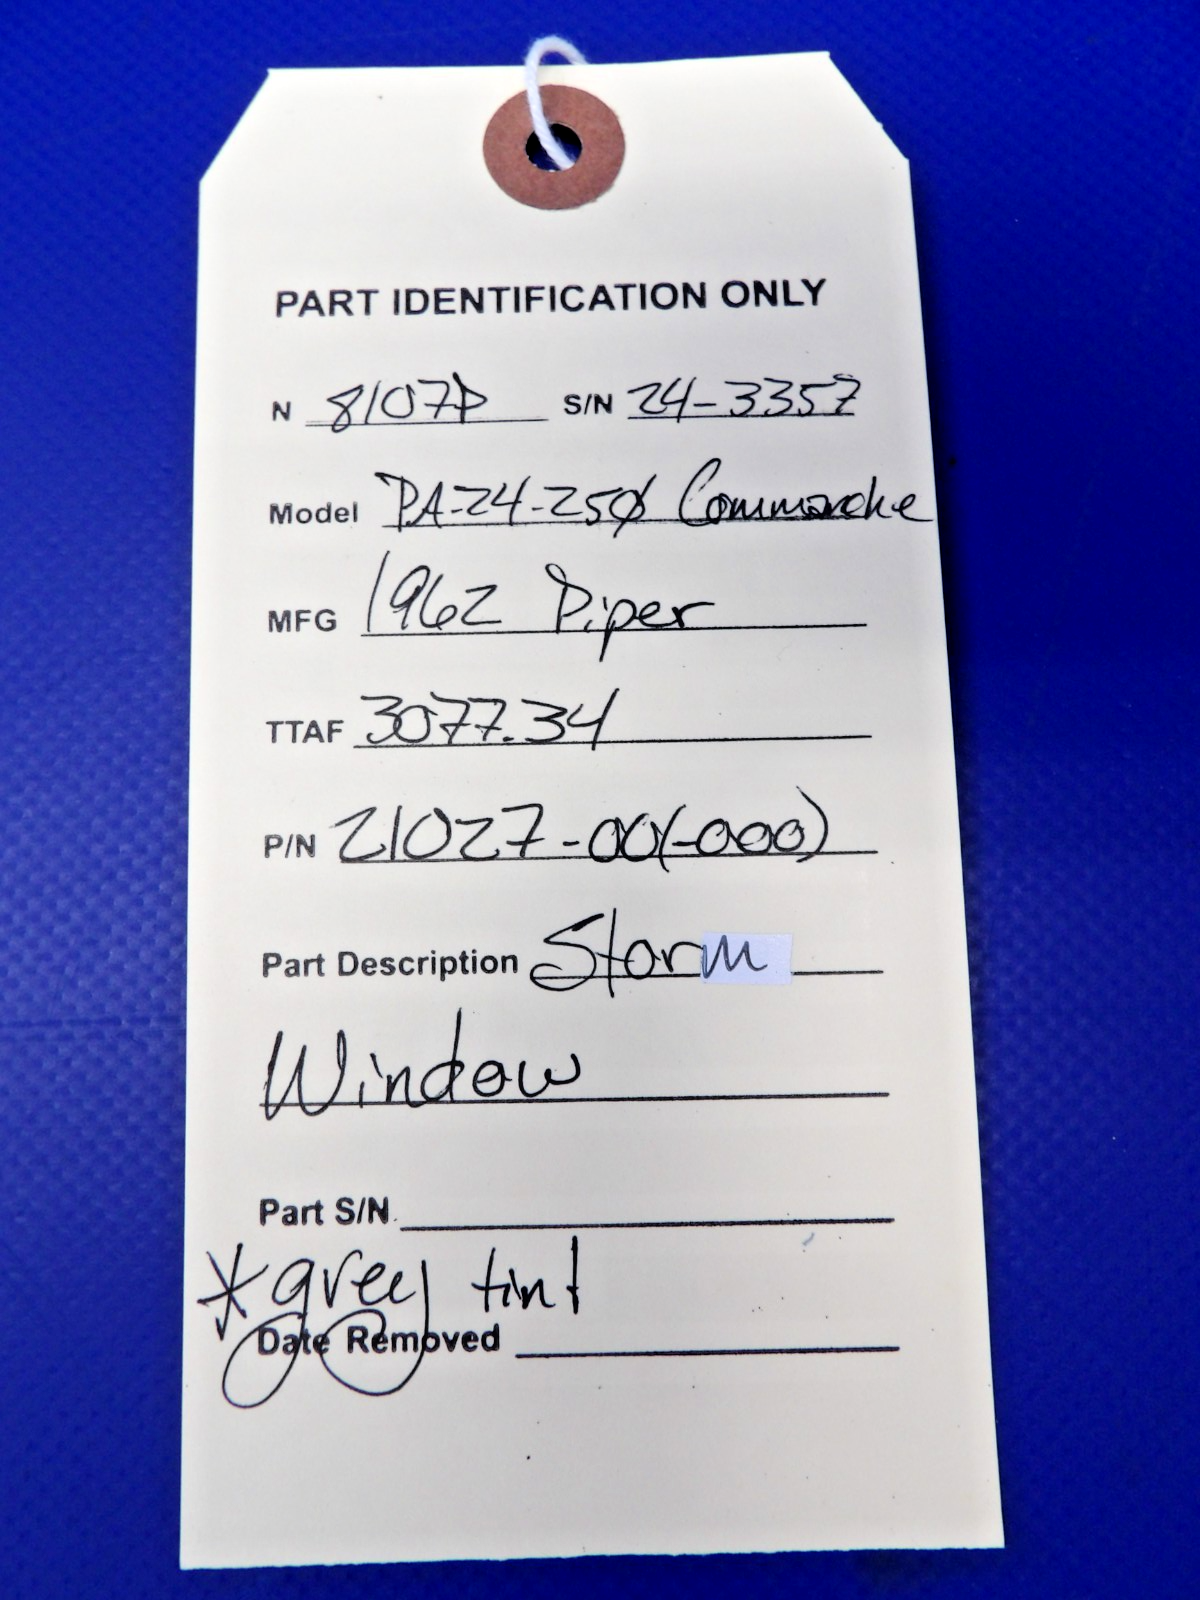 PART IDENTIFICATION ONLY
N 8107P S/N 24-3357
Model PA-24-250 Commanche
MFG 1962 Piper
TTAF 3077.34
P/N 21027-00(-000)
Part Description Storm
Window
Part S/N
*grey tint
Date Removed